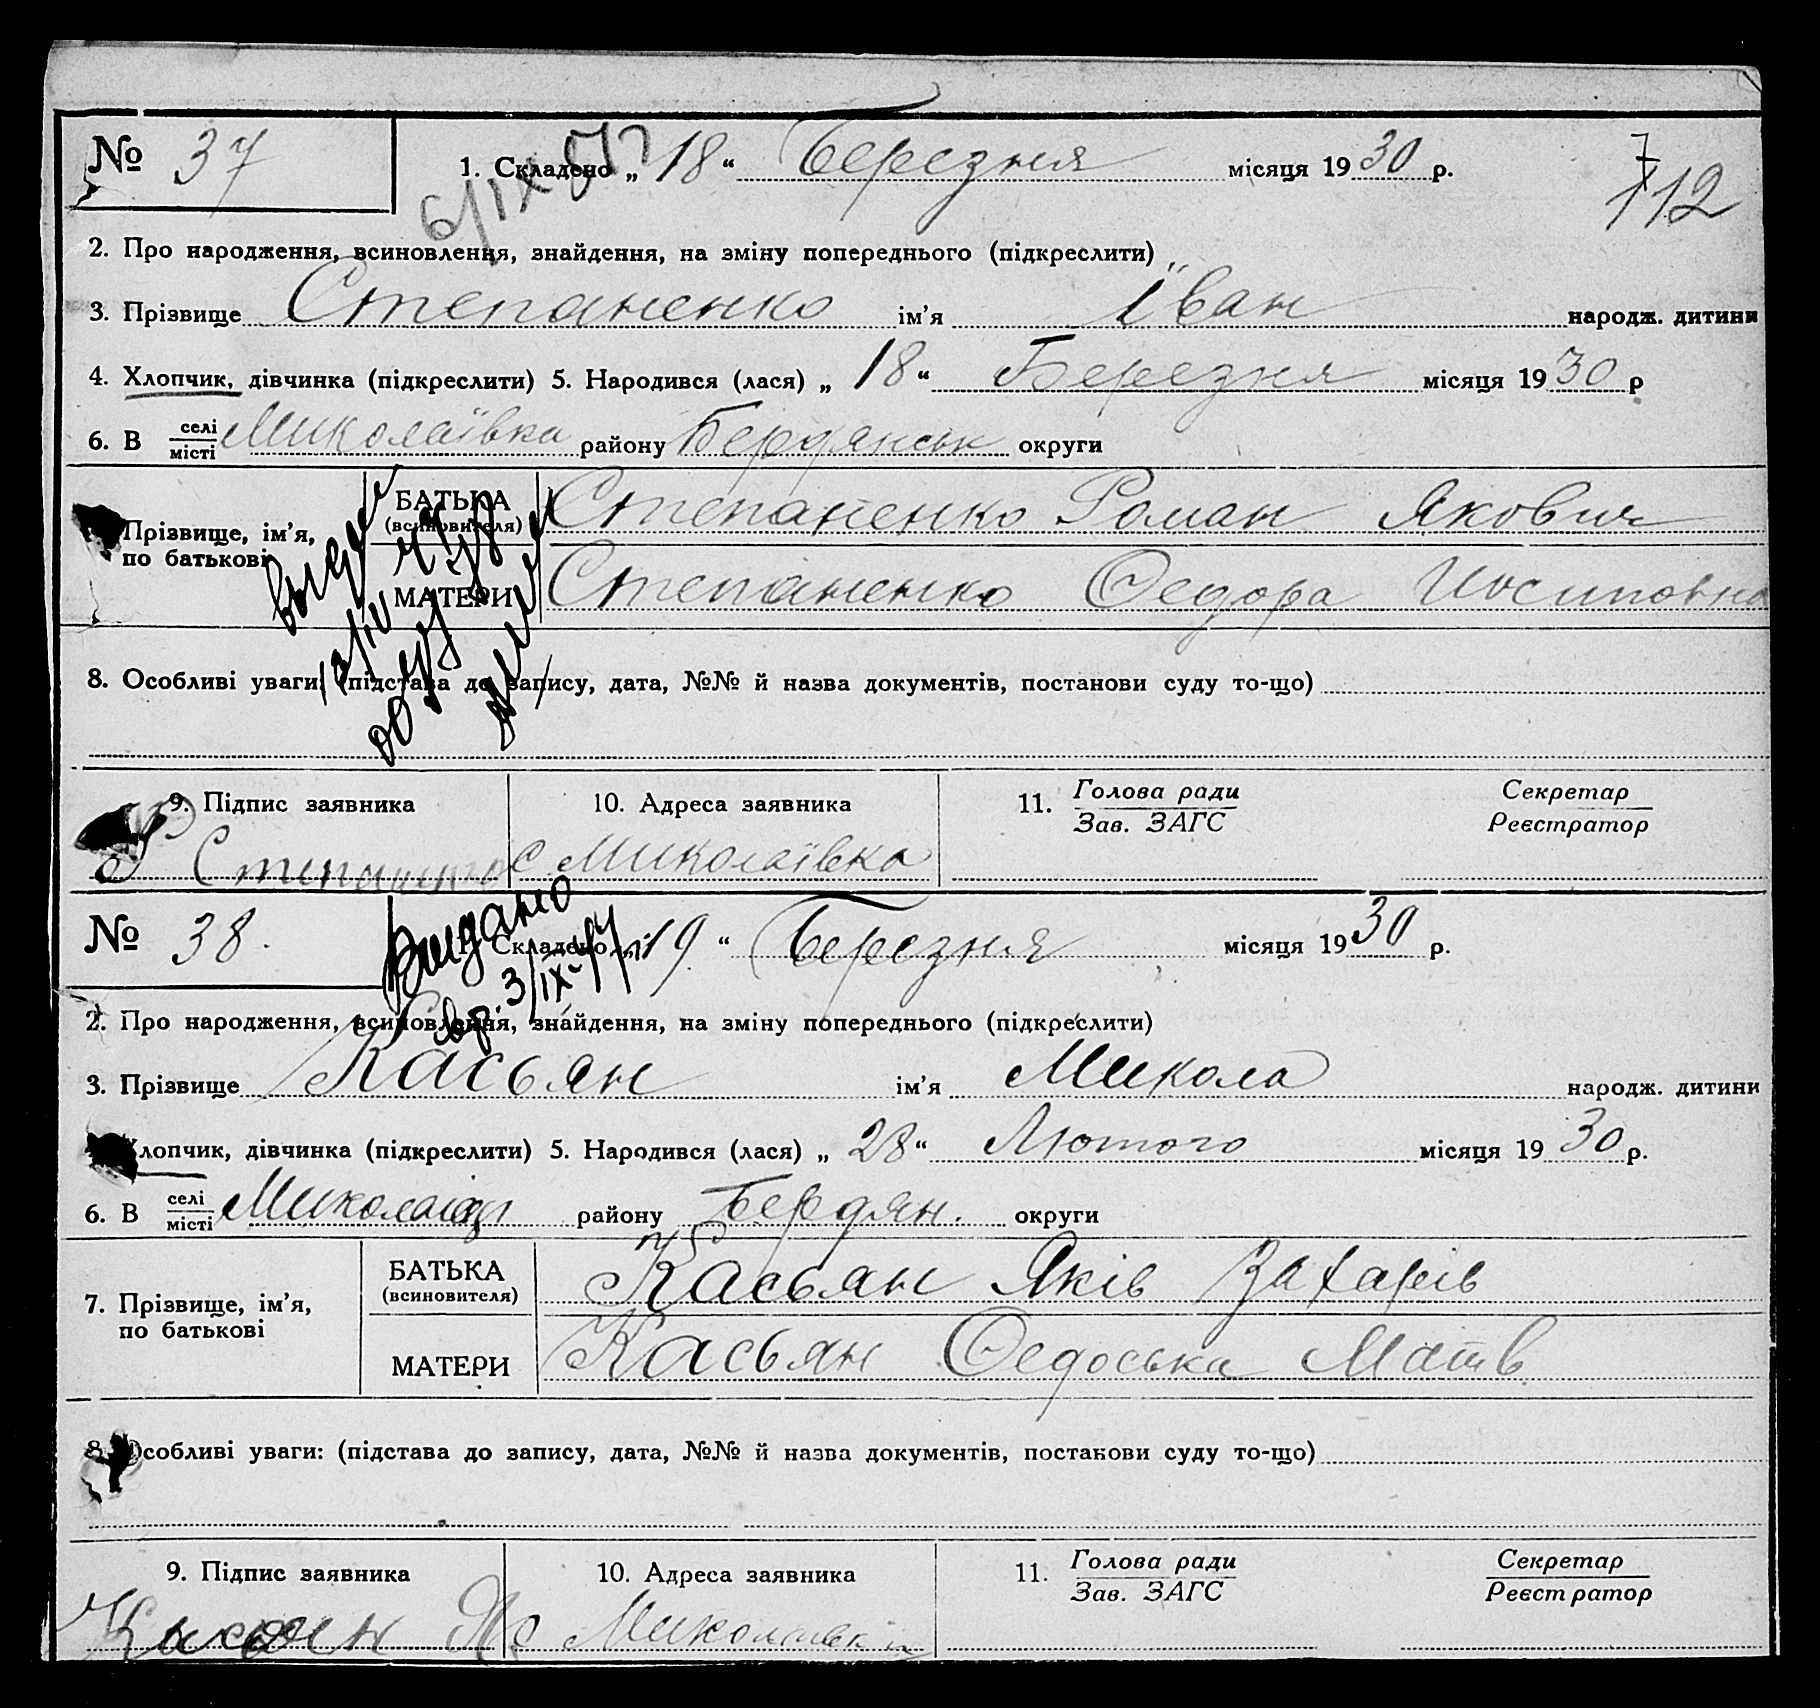 № 37
1. Складено „ 18 “ Березня місяця 19 30 р.
112
2. Про народження, всиновлення, знайдення, на зміну попереднього (підкреслити)
3. Прізвище Степаненко ім’я Іван народж. дитини
4. Хлопчик, дівчинка (підкреслити) 5. Народився (лася) „ 18 “ Березня місяця 19 30 р
6. В селі/місті Миколаївка району Бердянськ округи
Прізвище, ім’я, по батькові
БАТЬКА (всиновителя) Степаненко Роман Якович
МАТЕРИ Степаненко Федора Иосиповна
8. Особливі уваги: (підстава до запису, дата, №№ й назва документів, постанови суду то-що)
9. Підпис заявника 10. Адреса заявника 11. Голова ради/Зав. ЗАГС Секретар/Реєстратор
Степаненко с Миколаївка
№ 38.
Видано
3/IX-
1. Складено „ 19 “ Березня місяця 19 30 р.
2. Про народження, всиновлення, знайдення, на зміну попереднього (підкреслити)
3. Прізвище Касьян ім’я Микола народж. дитини
Хлопчик, дівчинка (підкреслити) 5. Народився (лася) „ 28 “ Лютого місяця 19 30 р.
6. В селі/місті району Бердян. округи
7. Прізвище, ім’я, по батькові
БАТЬКА (всиновителя) Касьян Яків Захарів
МАТЕРИ Касьян Федоська Матв.
8. Особливі уваги: (підстава до запису, дата, №№ й назва документів, постанови суду то-що)
9. Підпис заявника 10. Адреса заявника 11. Голова ради/Зав. ЗАГС Секретар/Реєстратор
Касьян Я с Миколаївка